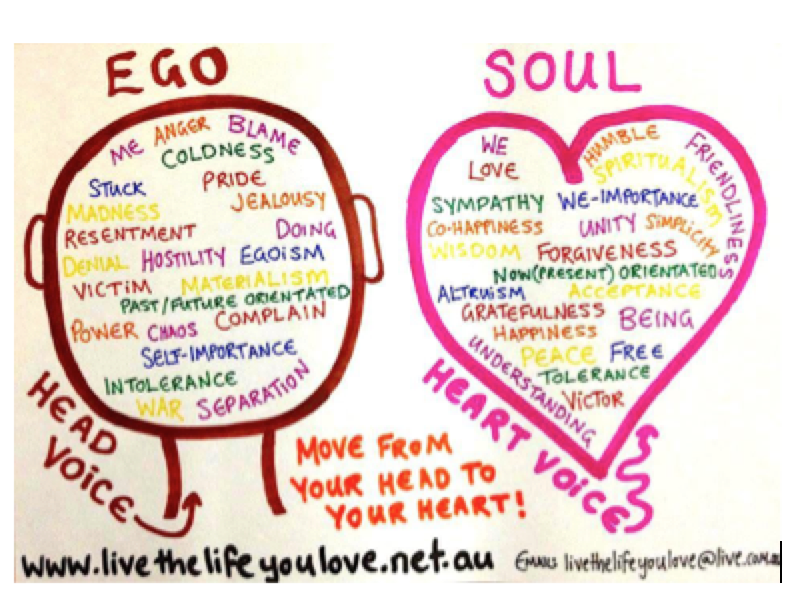 EGO
ME ANGER BLAME
COLDNESS
STUCK PRIDE
MADNESS JEALOUSY
RESENTMENT DOING
DENIAL HOSTILITY EGOISM
VICTIM MATERIALISM
PAST/FUTURE ORIENTATED
POWER CHAOS COMPLAIN
SELF-IMPORTANCE
INTOLERANCE
WAR SEPARATION
HEAD
VOICE
SOUL
WE HUMBLE FRIENDLINESS
LOVE SPIRITUALISM
SYMPATHY WE-IMPORTANCE
CO-HAPPINESS UNITY SIMPLICITY
WISDOM FORGIVENESS
NOW(PRESENT) ORIENTATED
ALTRUISM ACCEPTANCE
GRATEFULNESS BEING
HAPPINESS
UNDERSTANDING PEACE FREE
TOLERANCE
VICTOR
HEART VOICE
MOVE FROM
YOUR HEAD TO
YOUR HEART!
www.livethelifeyoulove.net.au
livethelifeyoulove@live.com.au